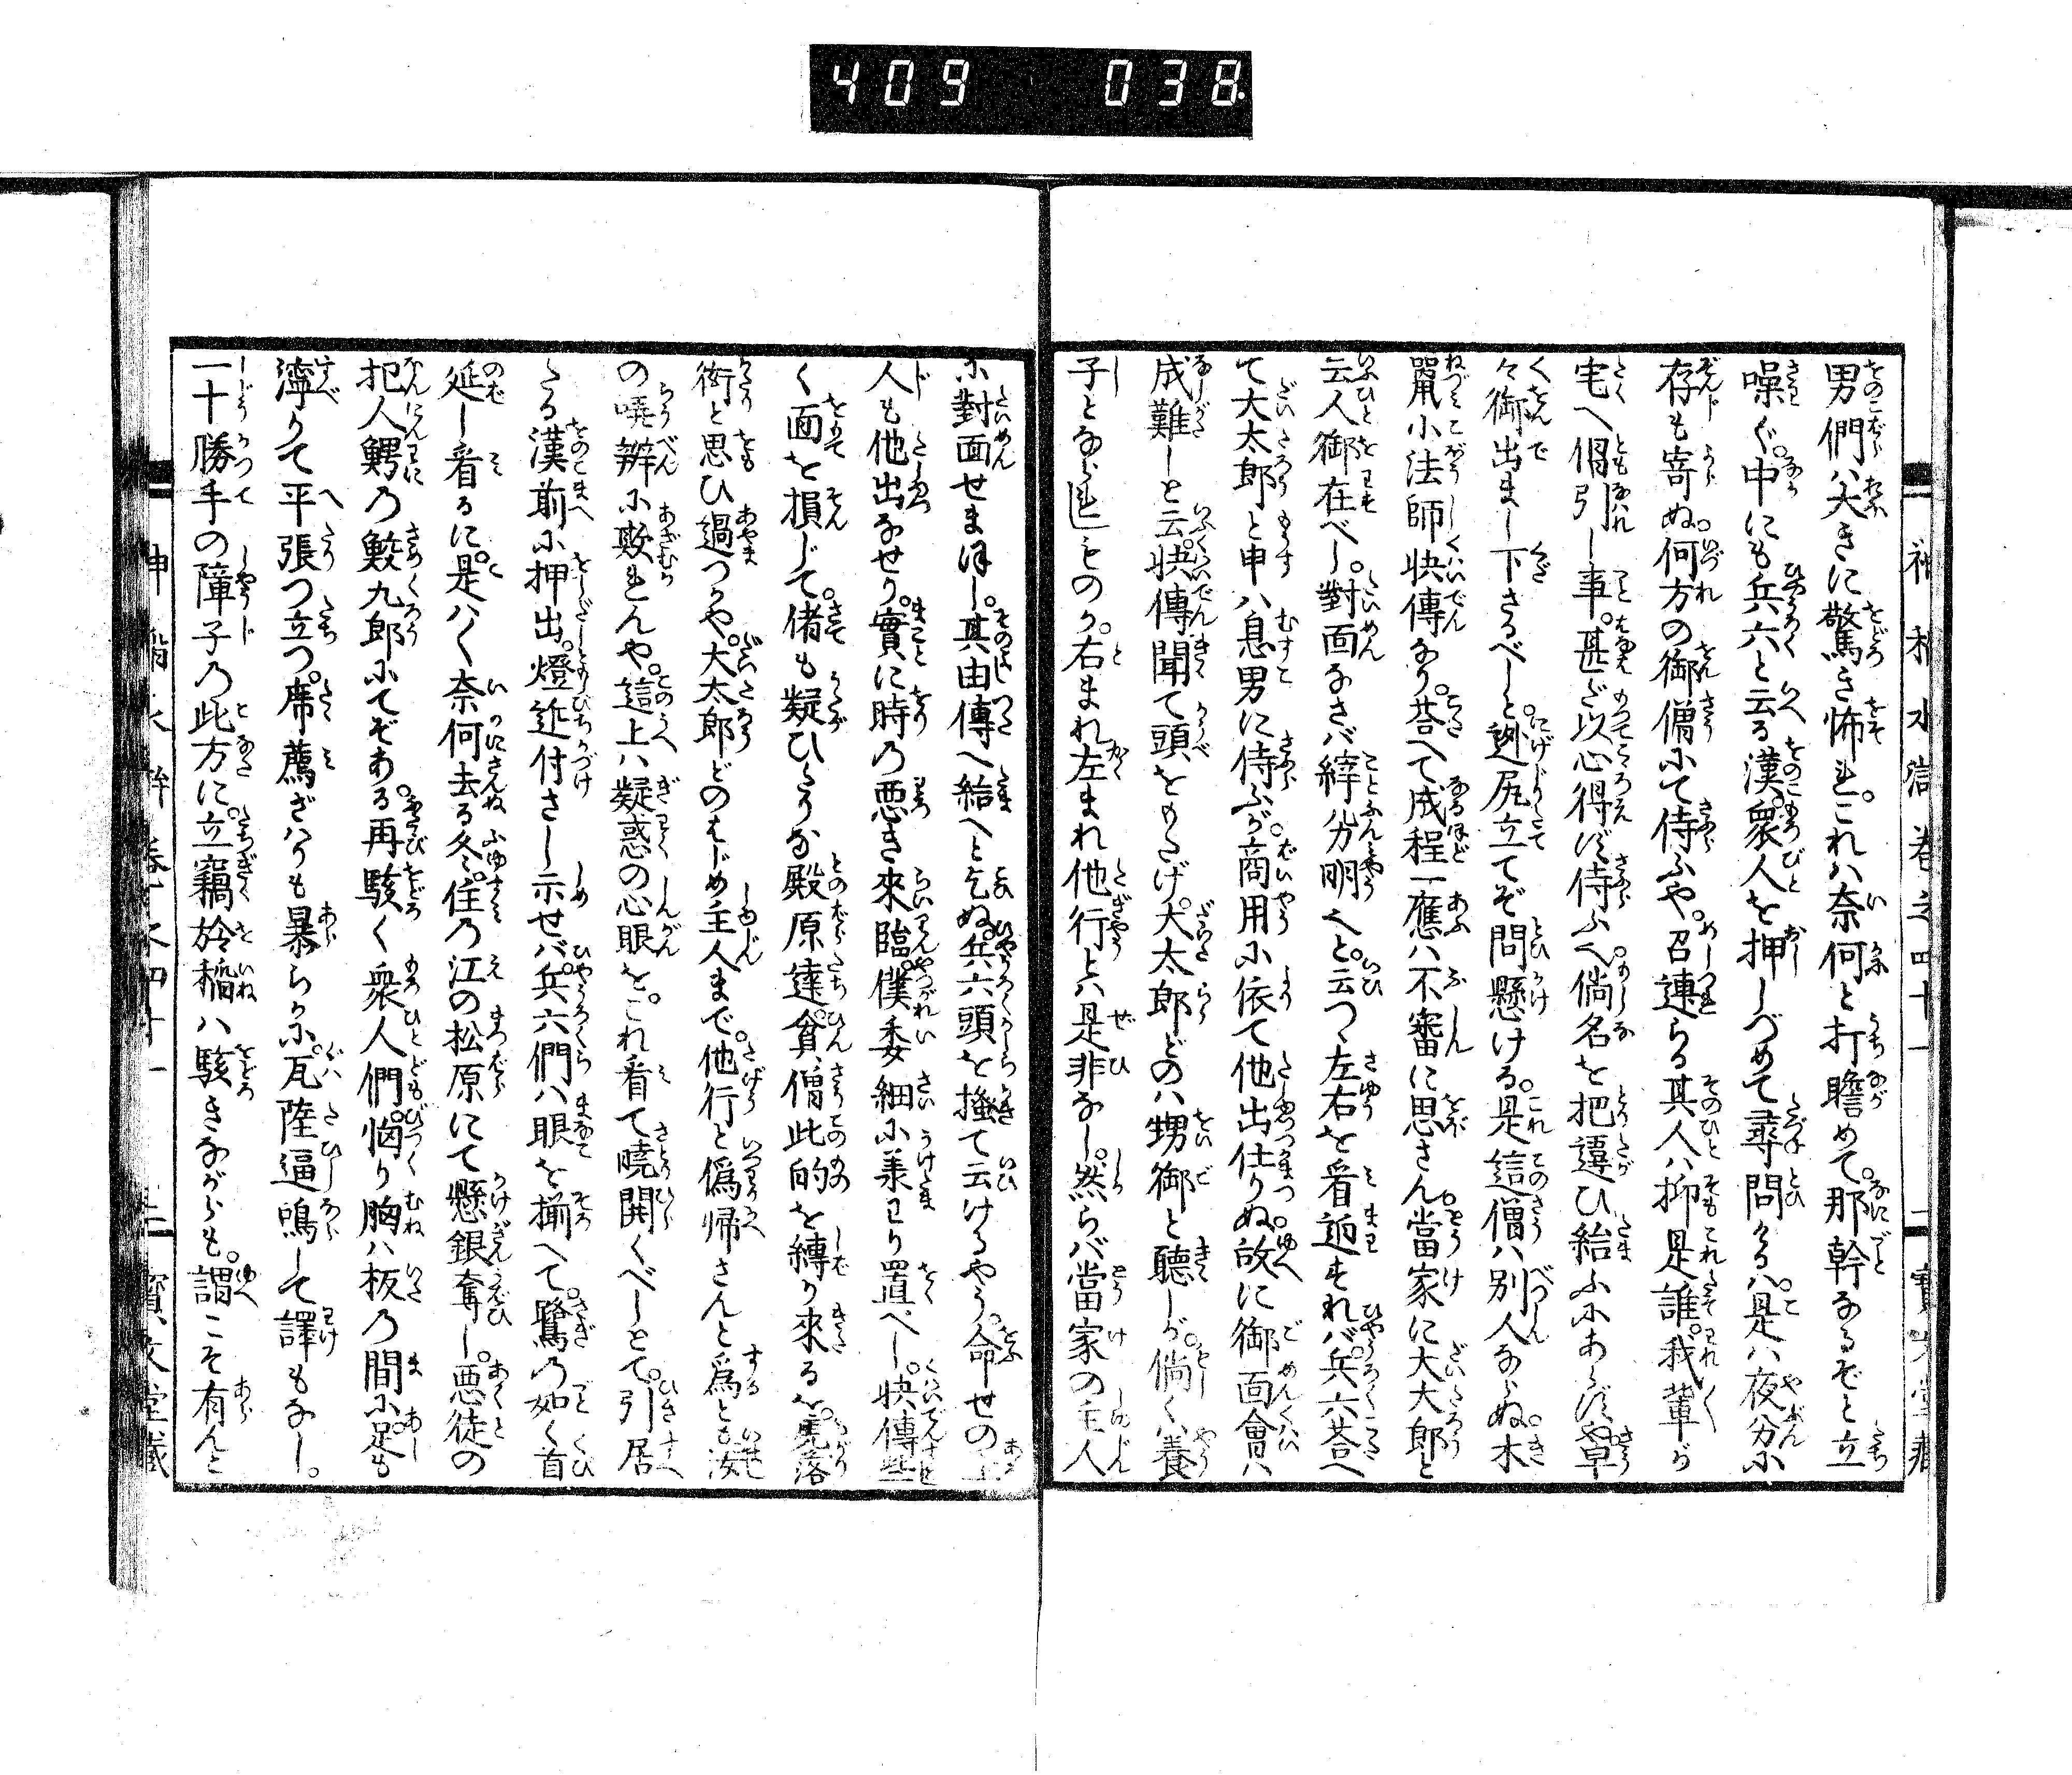 409 038
男們ハ大きに驚き怖れ。これハ奈何と打瞻めて。那幹なるぞと立
噪ぐ。中にも兵六と云る漢。衆人を押しづめて尋問くるハ。是ハ夜分に
存も寄ぬ。何方の御僧にて侍ふや。召連らる其人ハ抑是誰。我輩が
宅へ倡引し事。甚だ以心得ず侍ふ。倘名を把違ひ給ふにあらずや。早
々御出まし下さるべしと。迯尻立てぞ問懸ける。是這僧ハ別人ならぬ。木
鼠小法師快傳なり。荅へて成程一應ハ不審に思さん。當家に大太郎と
云人御在べし。對面なさバ縡分明へと。云つゝ左右を看廻すれバ。兵六荅へ
て大太郎と申ハ息男に侍ふが。商用に依て他出仕りぬ。故に御面會ハ
成難しと云。快傳聞て頭をもたげ。大太郎どのハ甥御と聴しが。倘くハ養
子となられしものか。右まれ左まれ他行とハ是非なし。然らバ當家の主人
に對面せまほし。其由傳へ給へと乞ぬ。兵六頭を掻て云けるやう。命せの主
人も他出なせり。實に時の悪き來臨。僕委細に美わり置べし。快傳些
く面を損じて。偖も疑ひふかな殿原達。貧僧此的を縛り來るハ。
衒と思ひ過つるや。大太郎どのはじめ主人まで。他行と偽帰さんと為とも。汝
の嘵辨に欺れんや。這上ハ疑惑の心眼を。これ看て暁開くべしとて。引居
たる漢前に押出。燈近付さし示せバ。兵六們ハ眼を揃へて。鷺の如く首
延し看るに。是ハく奈何去る冬。住の江の松原にて懸銀奪し。悪徒の
犯人鰐の鮫九郎にてぞある。再び駭く衆人們。恟り胸ハ板の間に。足も
滑りて平張つ立つ。席薦ざハりも暴らかに。瓦陸逼鳴して譯もなし。
一十勝手の障子の此方に。立竊於稲ハ駭きながらも。謂こそ有んと